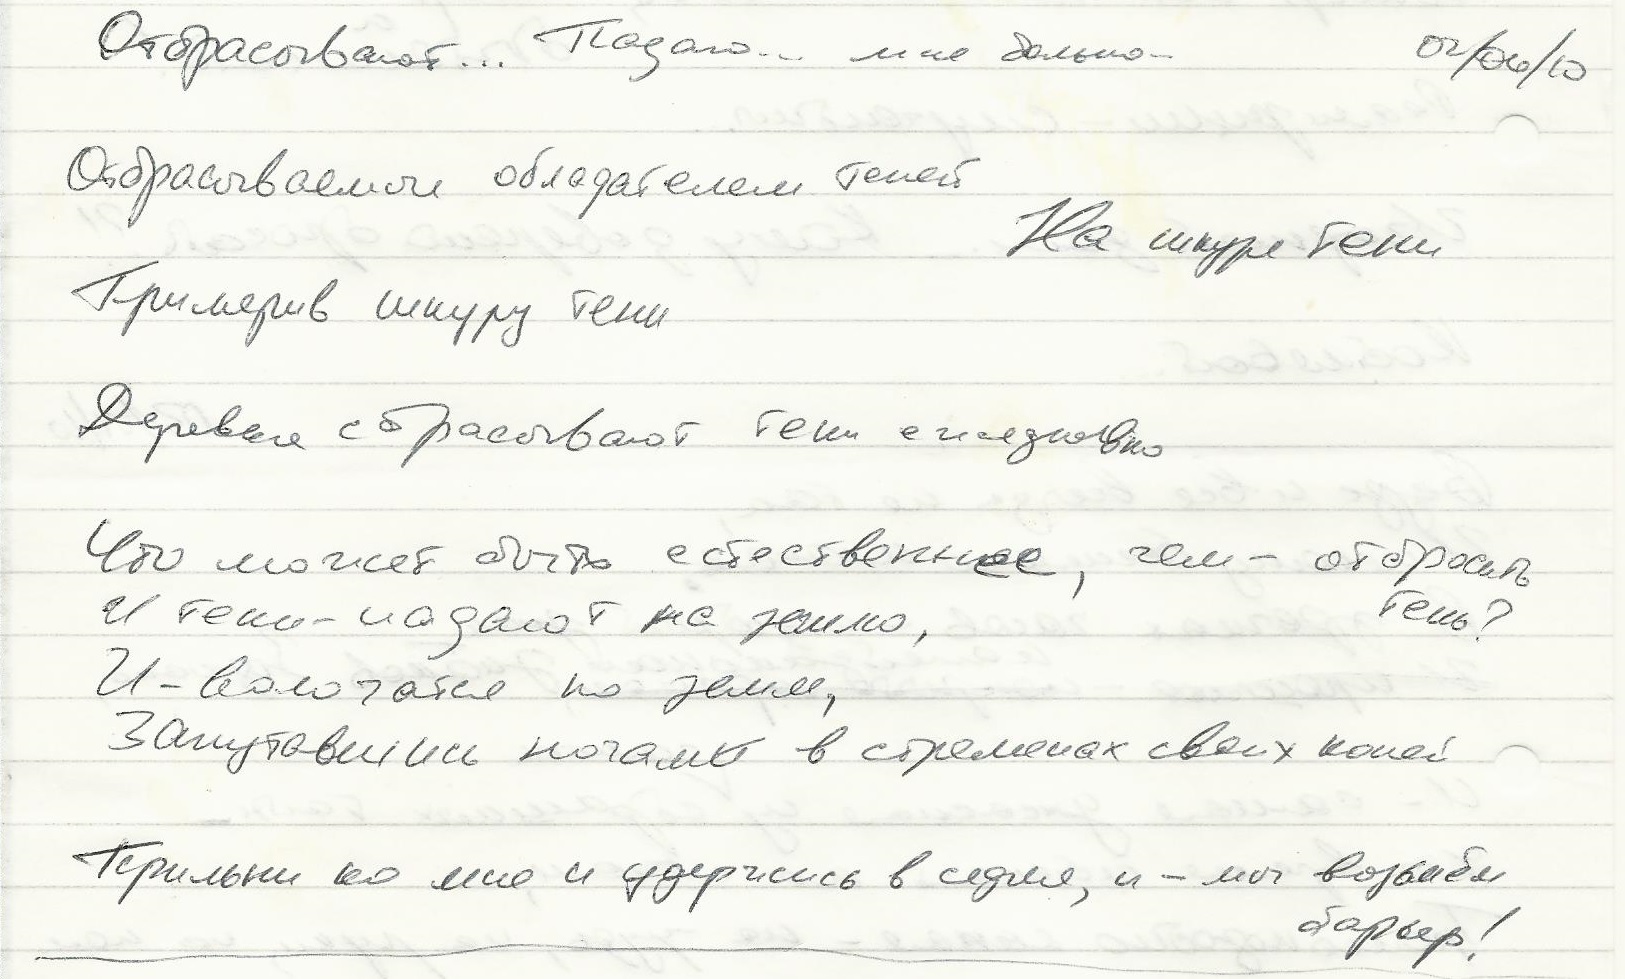 Отбрасывают... Падаю... мне больно- 02/06/10
Отбрасываемой обладателем теней
На шкуре тени
Примерив шкуру тени
Деревья сбрасывают тени ежедневно
Что может быть естественнее, чем - отбросить
тень?
И тени - падают на землю,
И - волочатся по земле,
Запутавшись ногами в стременах своих коней
Прильни ко мне и удержись в седле, и - мы возьмём
барьер!